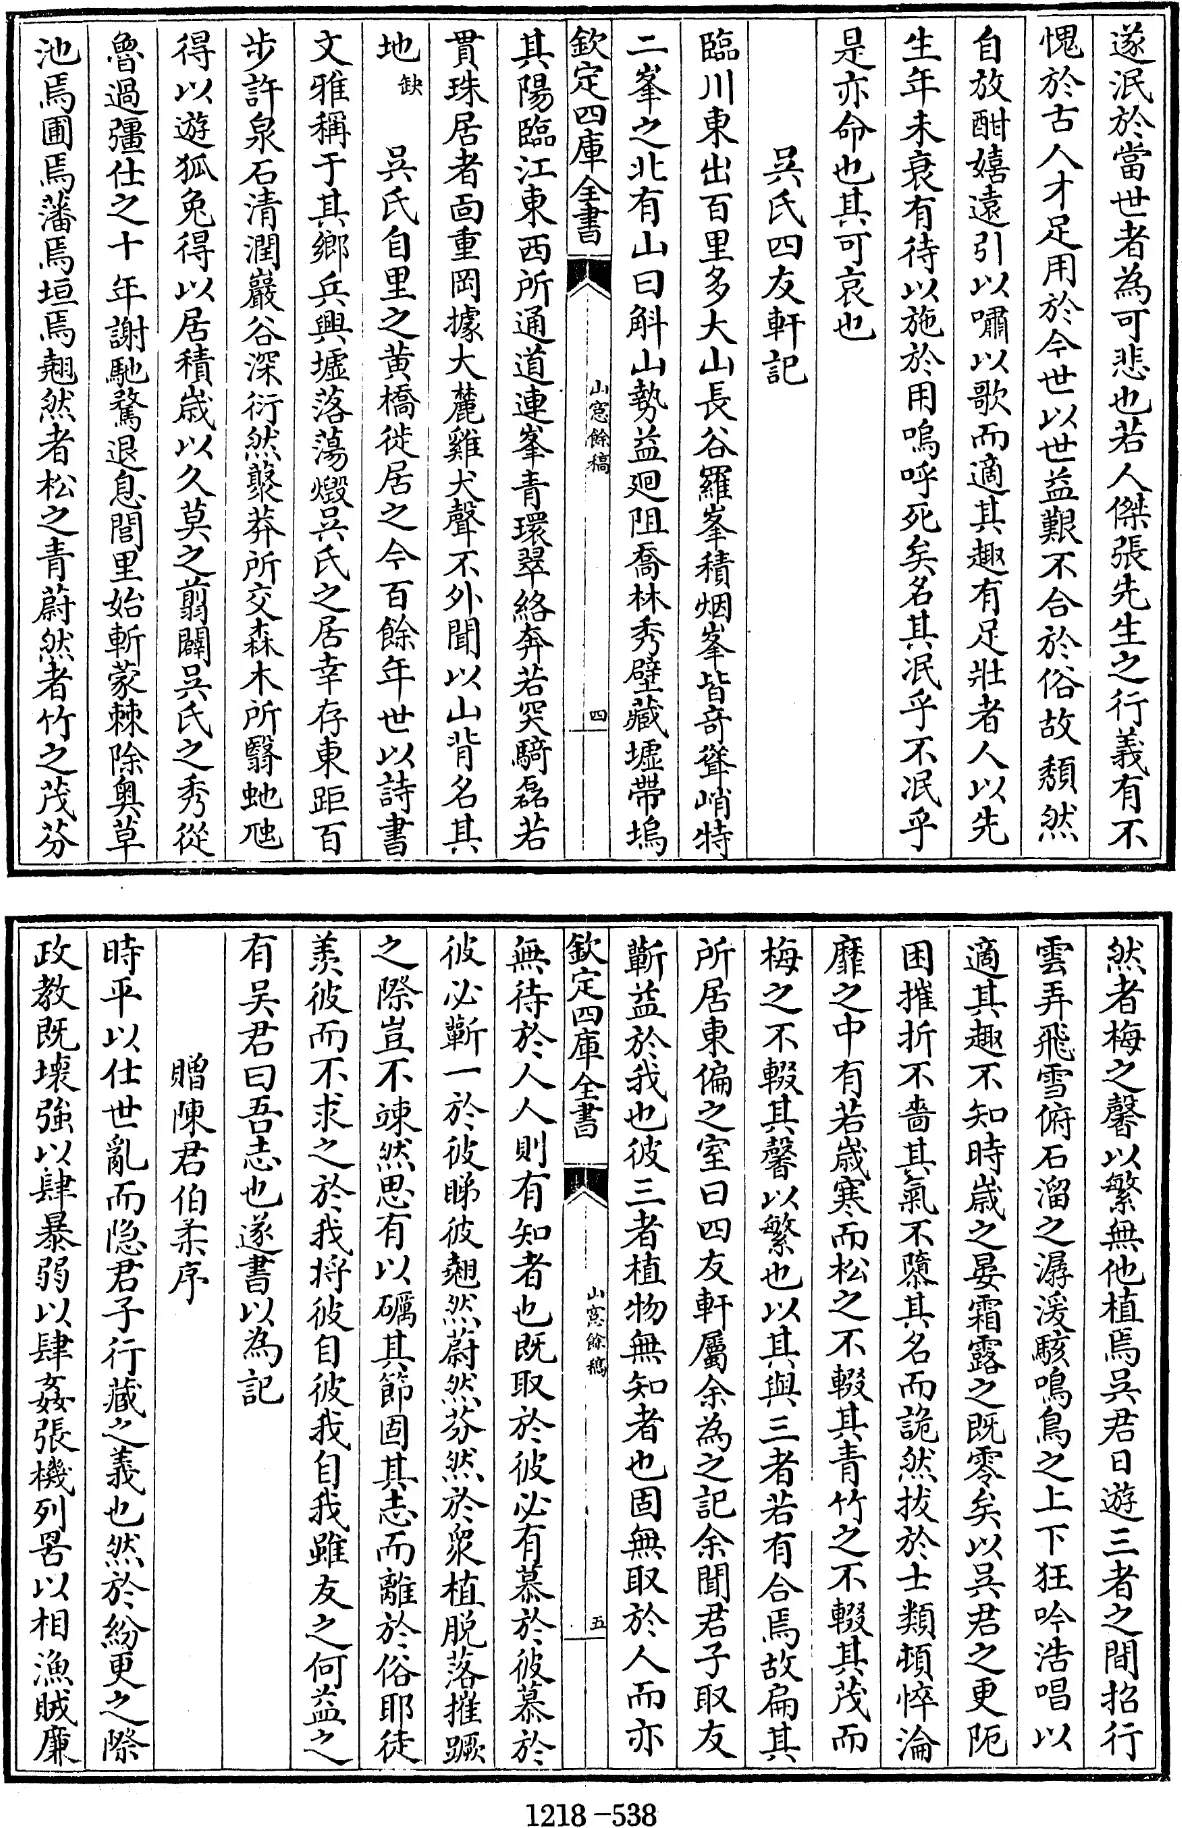 遂泯於當世者為可悲也若人傑張先生之行義有不
愧於古人才足用於今世以世益艱不合於俗故頽然
自放酣嬉遠引以嘯以歌而適其趣有足壯者人以先
生年未衰有待以施於用嗚呼死矣名其泯乎不泯乎
是亦命也其可哀也
吳氏四友軒記
臨川東出百里多大山長谷羅峯積烟峯皆奇聳峭特
二峯之北有山曰斛山勢益廻阻喬林秀壁藏墟帶塢
欽定四庫全書 山窓餘稿 四
其陽臨江東西所通道連峯青環翠絡奔若突騎磊若
貫珠居者面重岡據大麓雞犬聲不外聞以山背名其
地缺 吳氏自里之黄橋徙居之今百餘年世以詩書
文雅稱于其鄉兵興墟落蕩燬吳氏之居幸存東距百
步許泉石清潤巖谷深衍然藂莽所交森木所翳虵虺
得以遊狐兔得以居積歳以久莫之翦闢吳氏之秀從
魯過彊仕之十年謝馳騖退息閭里始斬蒙棘除奥草
池焉圃焉藩焉垣焉翹然者松之青蔚然者竹之茂芬
然者梅之馨以繁無他植焉吳君日遊三者之間招行
雲弄飛雪俯石溜之潺湲駭鳴鳥之上下狂吟浩唱以
適其趣不知時歳之晏霜露之既零矣以吳君之更阨
困摧折不嗇其氣不隳其名而詭然拔於士類頓悴淪
靡之中有若歳寒而松之不輟其青竹之不輟其茂而
梅之不輟其馨以繁也以其與三者若有合焉故扁其
所居東偏之室曰四友軒屬余為之記余聞君子取友
蘄益於我也彼三者植物無知者也固無取於人而亦
欽定四庫全書 山窓餘稿 五
無待於人人則有知者也既取於彼必有慕於彼慕於
彼必蘄一於彼睇彼翹然蔚然芬然於衆植脱落摧蹶
之際豈不竦然思有以礪其節固其志而離於俗耶徒
羨彼而不求之於我將彼自彼我自我雖友之何益之
有吳君曰吾志也遂書以為記
贈陳君伯柔序
時平以仕世亂而隐君子行藏之義也然於紛更之際
政教既壊強以肆暴弱以肆姦張機列罟以相漁賊廉
1218-538